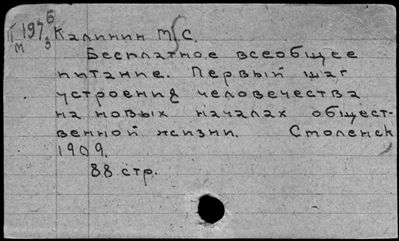 II 197 6/3
м
Калинин М.С.
Бесплатное всеобщее
питание. Первый шаг
устроения человечества
на новых началах общест-
венной жизни. Смоленск
1909.
88 стр.